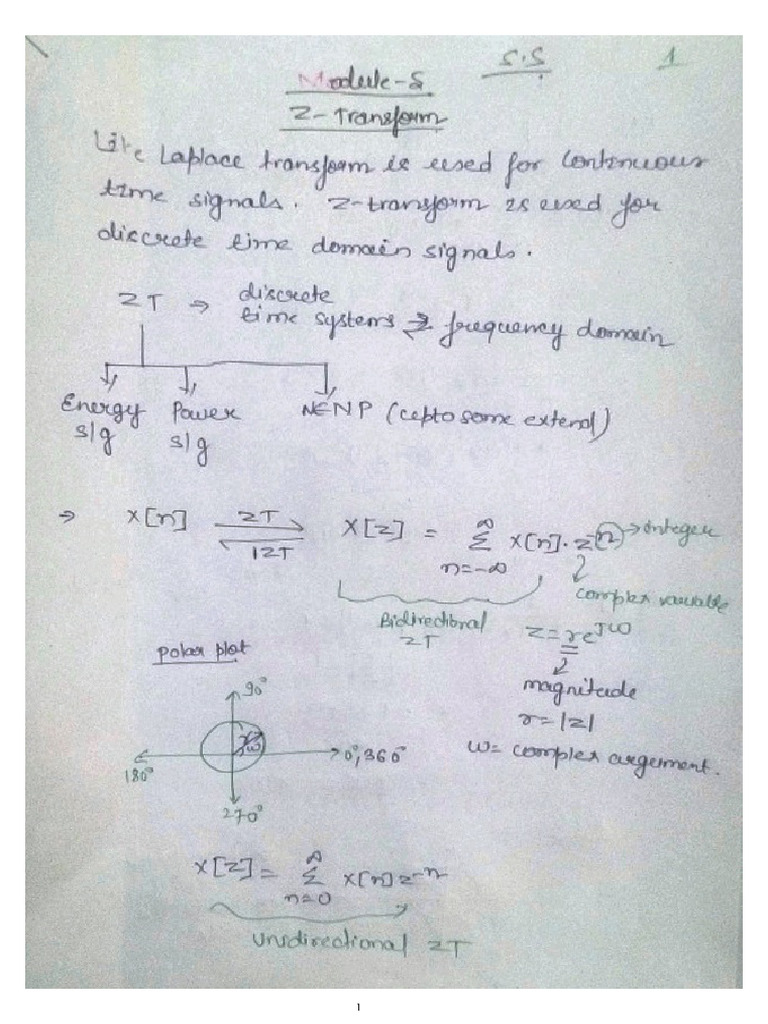 S.S 1
Module-5
Z-Transform
Like Laplace transform is used for continuous
time signals. Z-transform is used for
discrete time domain signals.
ZT → discrete
time systems ⇄ frequency domain
Energy s/g Power s/g NENP (upto some extend)
⇒ x[n] ZT ⇌ IZT X[z] = ∞ Σ n=-∞ x[n]. z^n → integer
complex variable
Bidirectional ZT
z = re^jω
magnitude
r = |z|
ω = complex argement.
Polar plot
90°
180° 0°, 360°
270°
X[z] = ∞ Σ n=0 x[n] z^-n
Unidirectional ZT
1